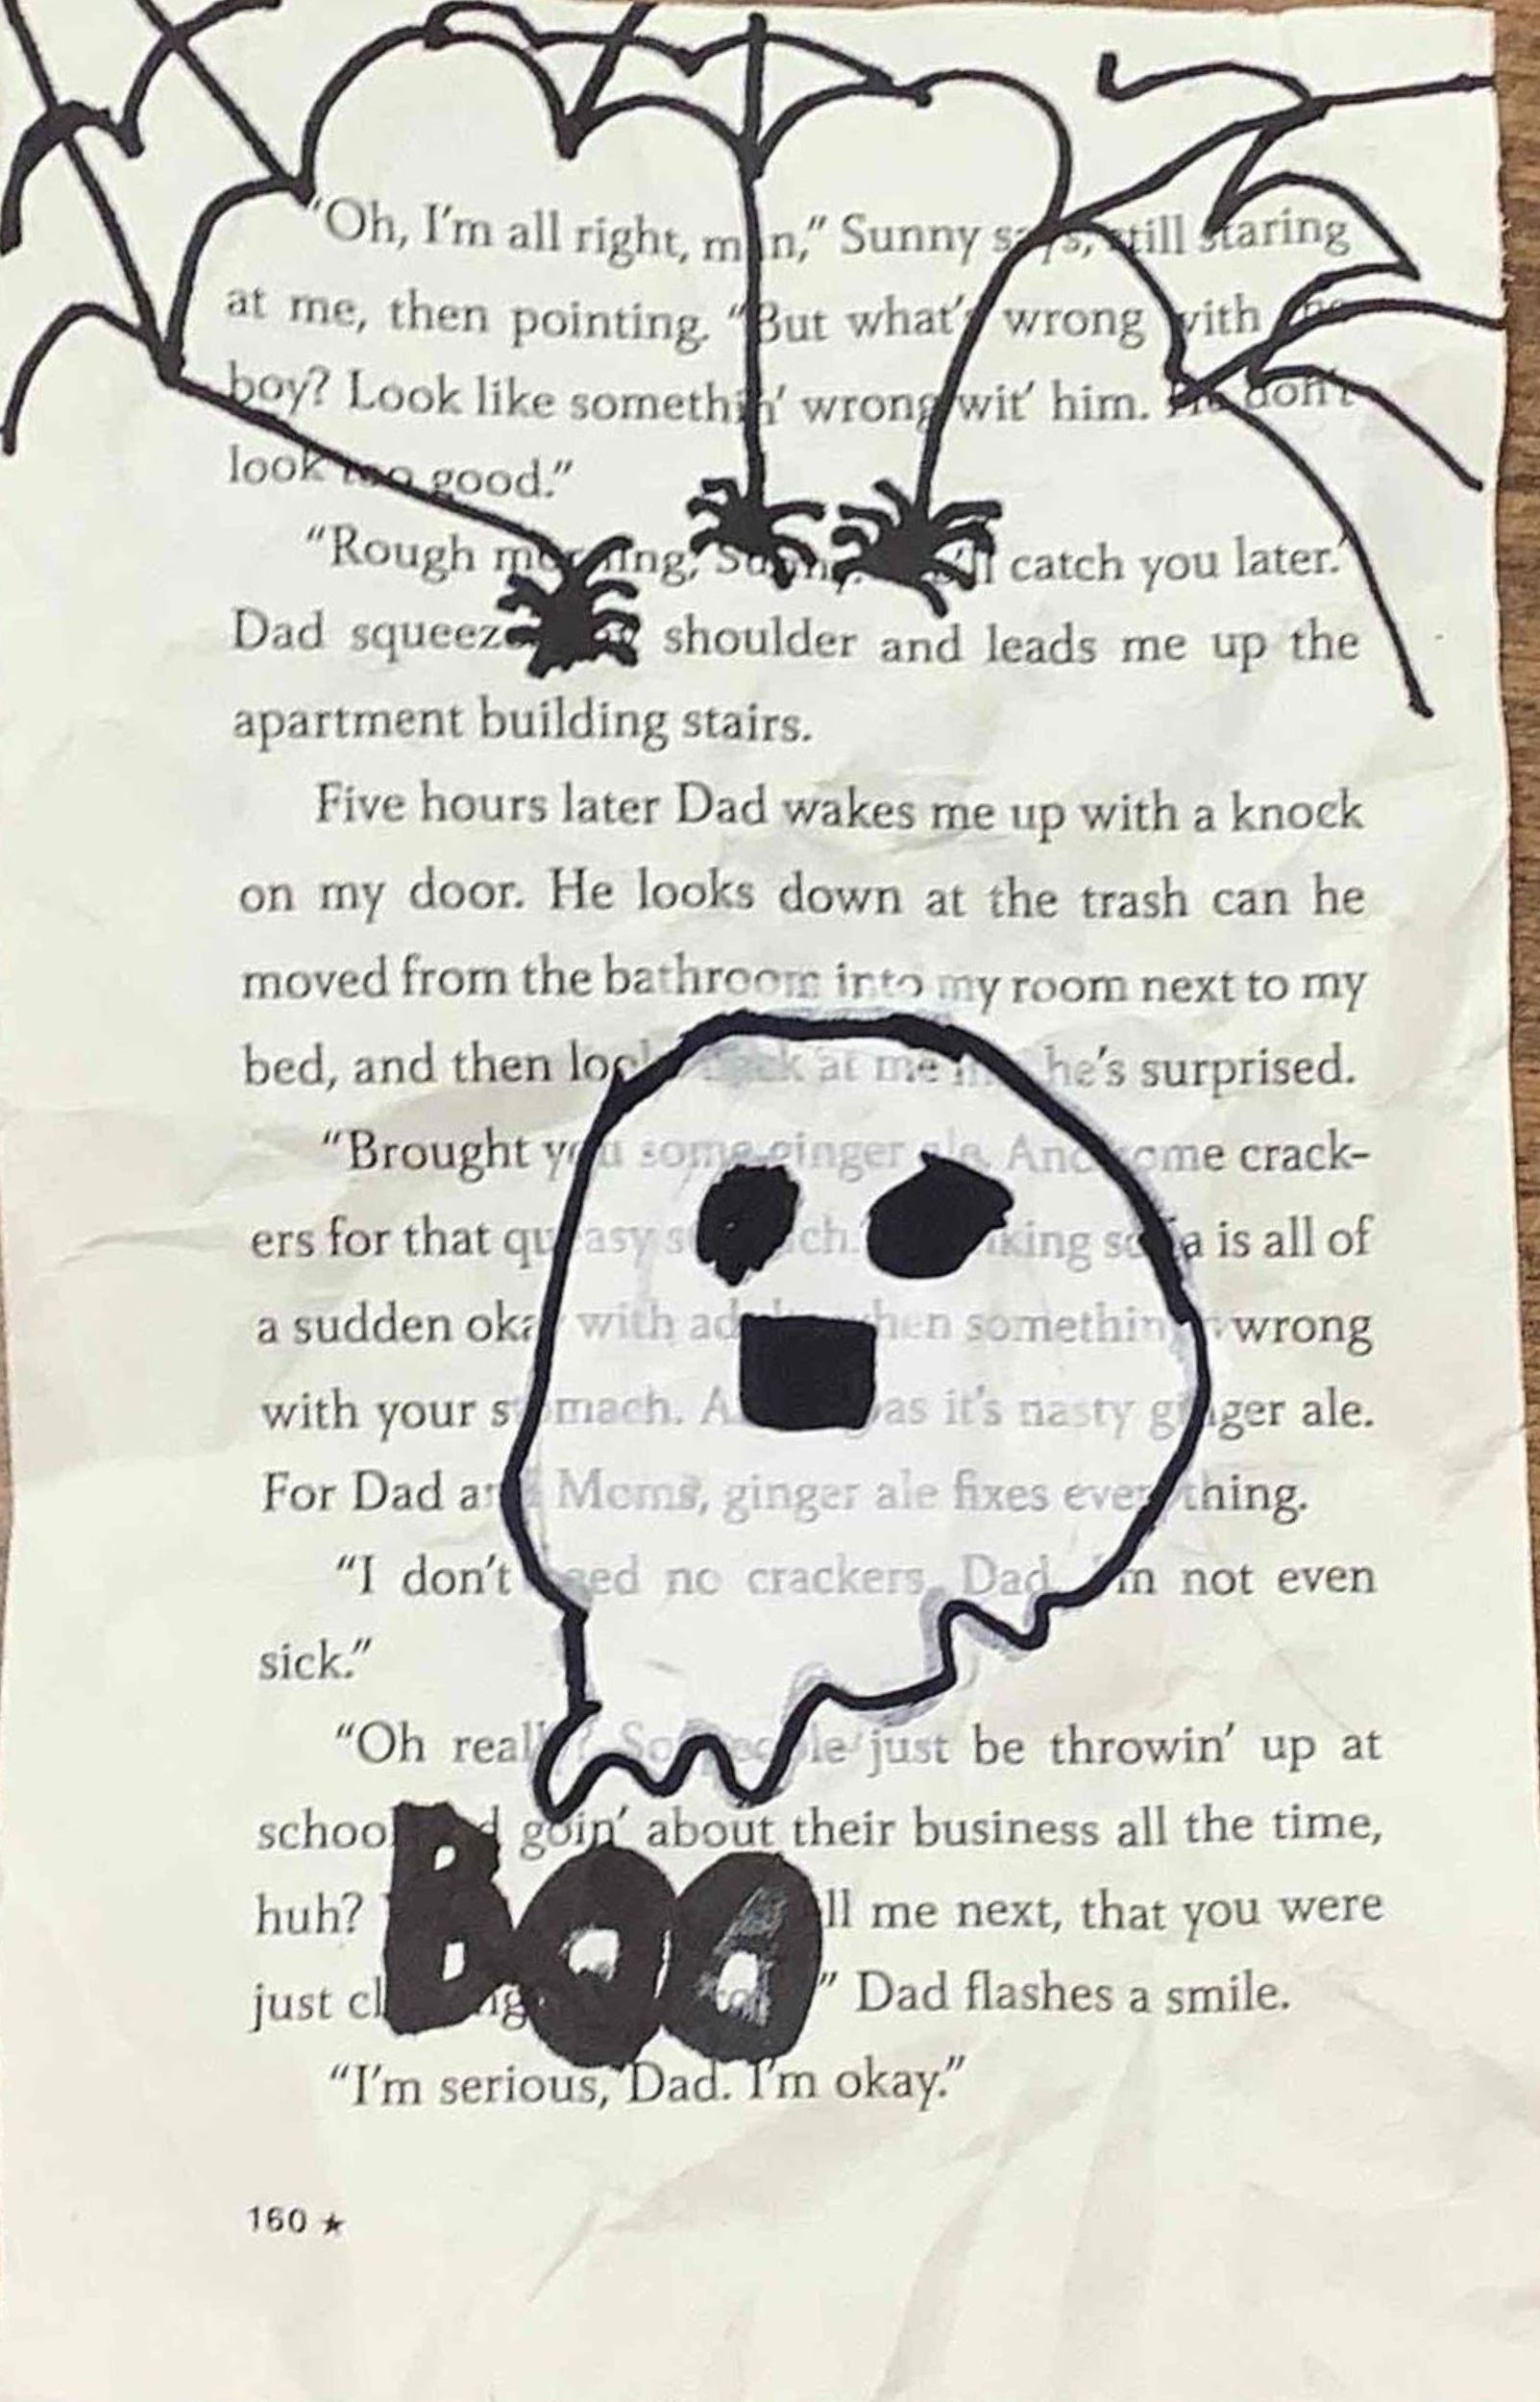 "Oh, I'm all right, man," Sunny says, still staring
at me, then pointing. "But what's wrong with
boy? Look like somethin' wrong wit' him. He don't
look too good."
"Rough morning, Sunny. I'll catch you later."
Dad squeezes my shoulder and leads me up the
apartment building stairs.
Five hours later Dad wakes me up with a knock
on my door. He looks down at the trash can he
moved from the bathroom into my room next to my
bed, and then looks back at me like he's surprised.
"Brought you some ginger ale. And some crack-
ers for that queasy stomach. Drinking soda is all of
a sudden okay with adults when something's wrong
with your stomach. As long as it's nasty ginger ale.
For Dad and Moms, ginger ale fixes everything.
"I don't need no crackers, Dad. I'm not even
sick."
"Oh really? So people just be throwin' up at
school and goin' about their business all the time,
huh? ll me next, that you were
just " Dad flashes a smile.
BOO
"I'm serious, Dad. I'm okay."
160 ★